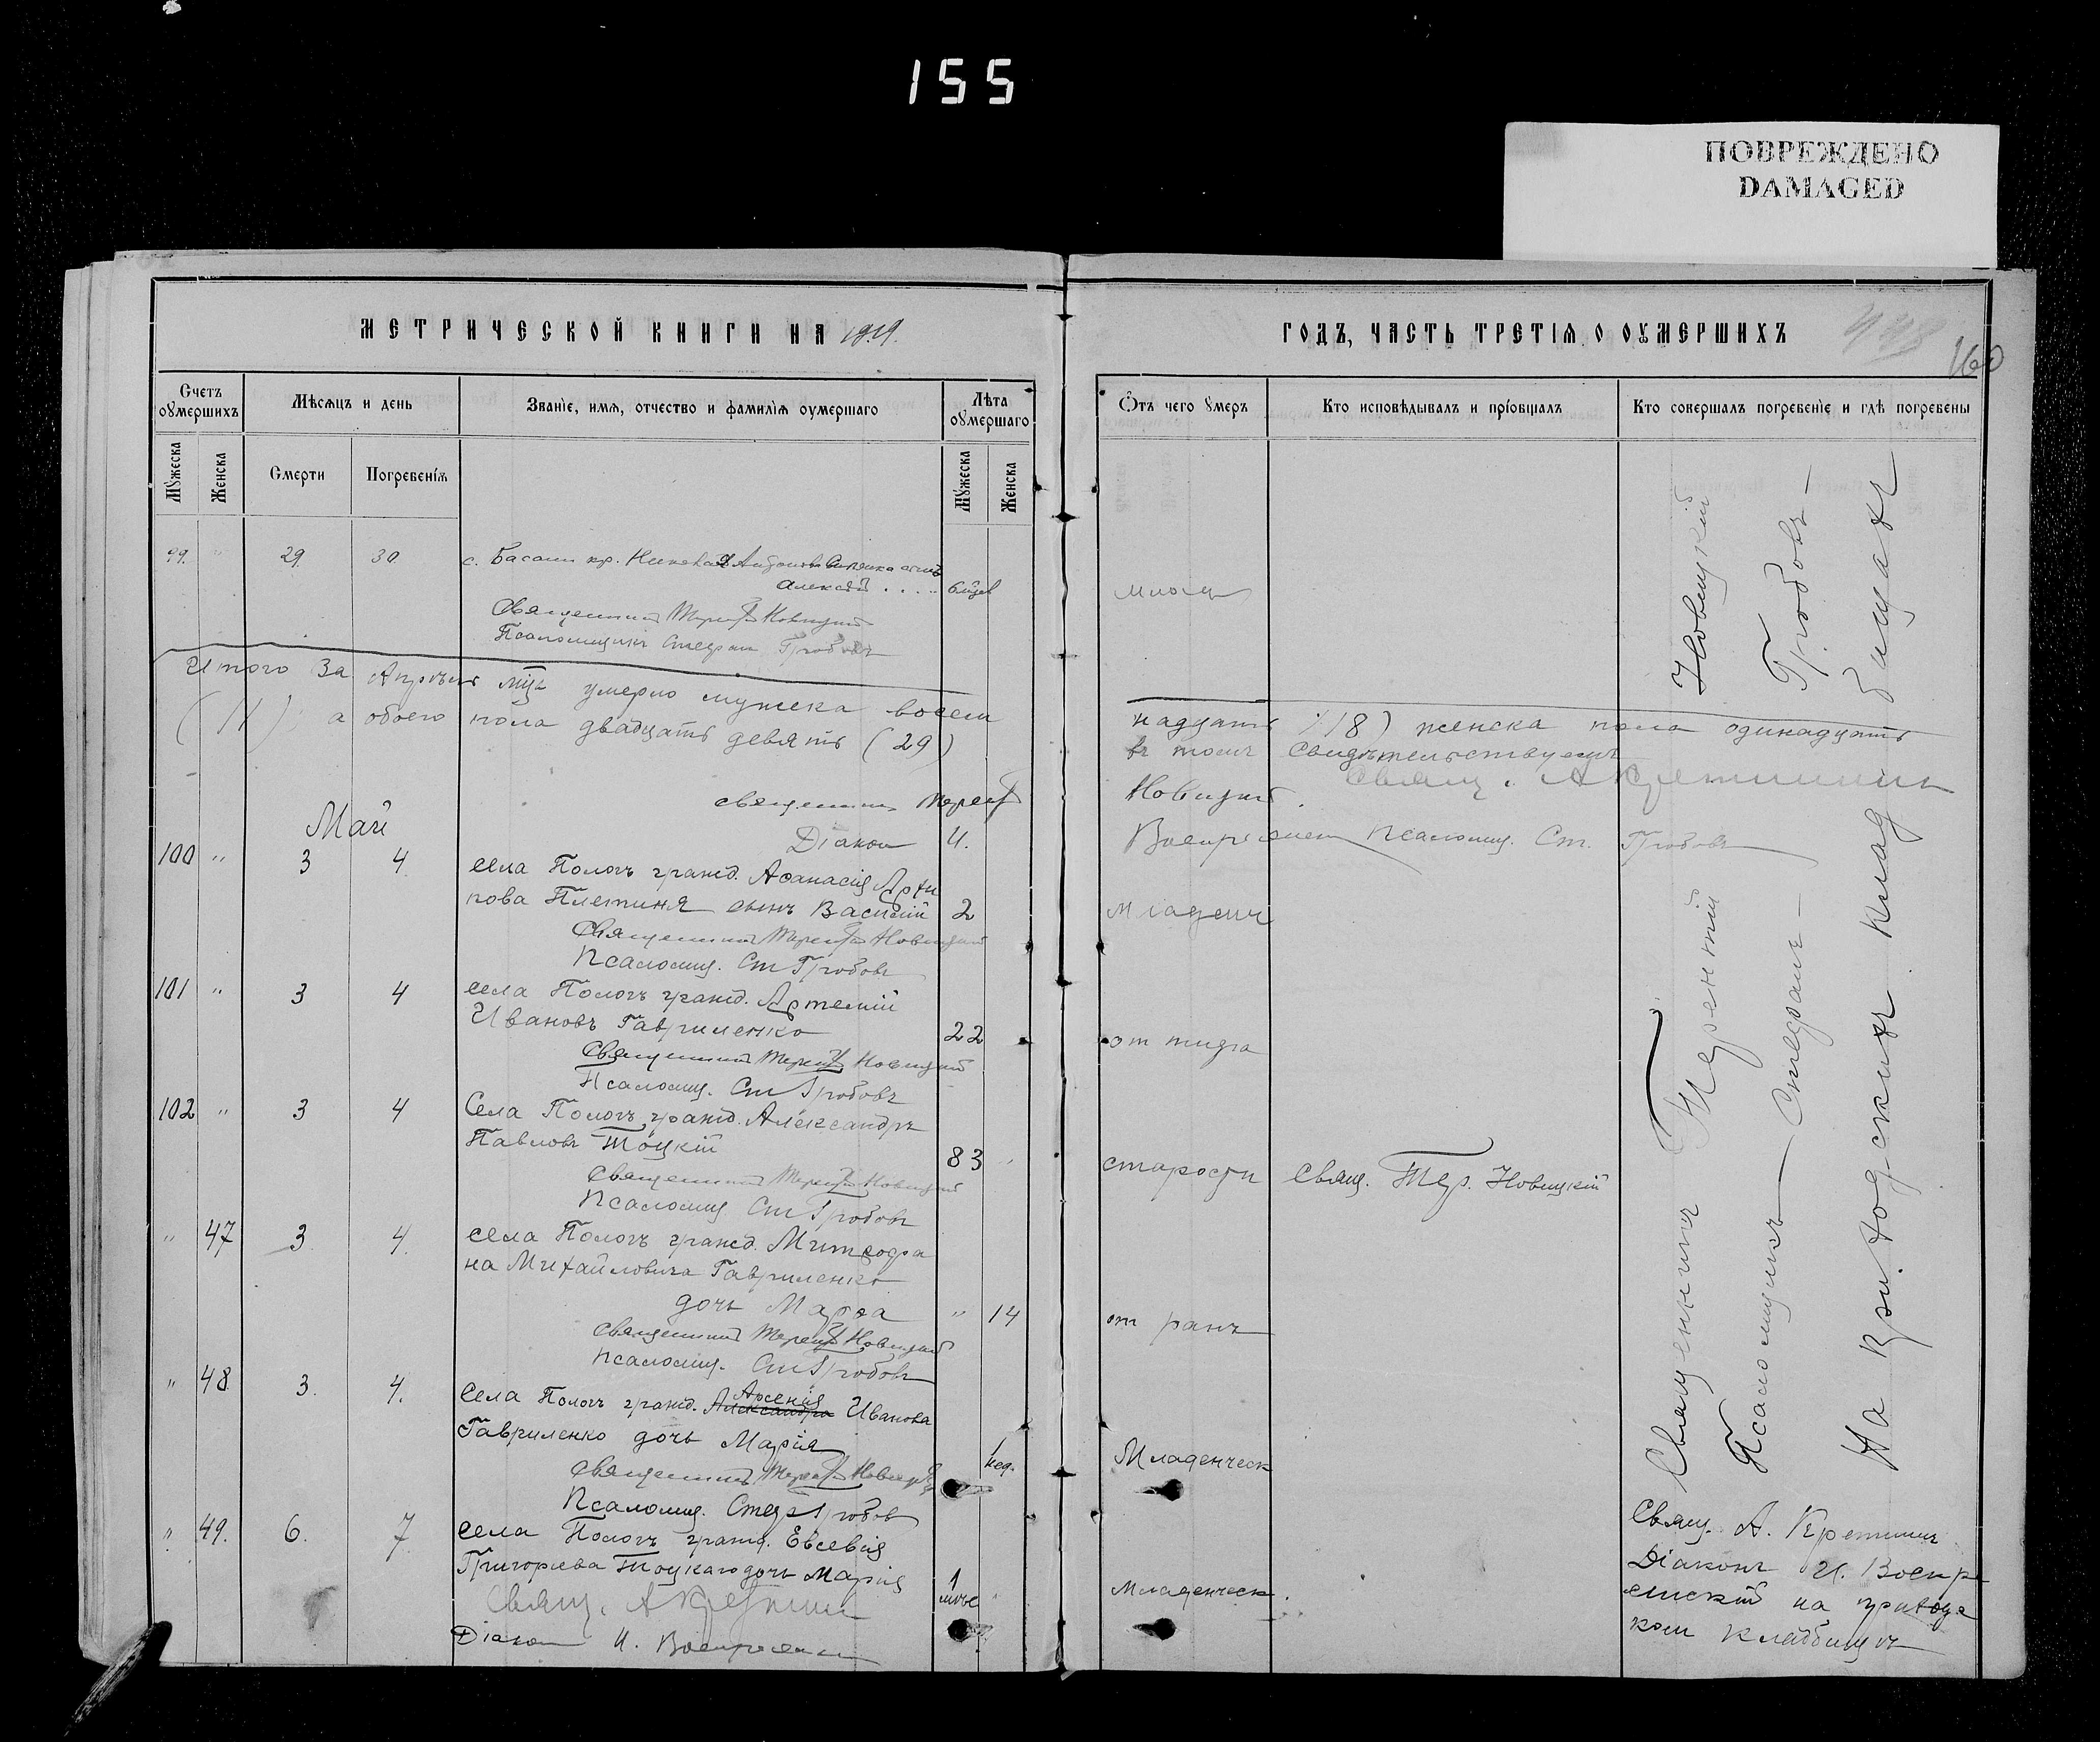 155
ПОВРЕЖДЕНО
DAMAGED
МЕТРИЧЕСКОЙ КНИГИ НА 1919.
Счетъ оумершихъ
Мѣсяцъ и день
Званіе, имя, отчество и фамилія оумершаго
Лѣта оумершаго
Мужеска
Женска
Смерти
Погребенія
Мужеска
Женска
99. " 29 30 с. Басани кр.
Алексѣй . . . .
Священникъ Терентій Новицкій
Псаломщикъ Стефан Гробовъ
Итого За Апрѣль мцъ умерло мужеска восем
(11) а обоего пола двадцать девять (29)
священникъ Терентій
Май
Діакон И.
100 " 3 4 села Пологъ гражд. Афанасія Архи
пова Плетиня сынъ Василій 2
Священникъ Терентій Новицкій
Псаломщ. Ст Гробовъ
101 " 3 4 села Пологъ гражд. Артемій
Ивановъ Гавриленко 22
Священникъ Терентій Новицкій
Псаломщ. Ст Гробовъ
102 " 3 4 Села Пологъ гражд. Александръ
Павловъ Тоцкій 83 "
Священникъ Терентій Новицкій
Псаломщ Ст Гробовъ
" 47 3 4. села Пологъ гражд. Митрофа
на Михайловича Гавриленко
дочь Марфа " 14
Священникъ Терентій Новицкій
Псаломщ. Ст Гробовъ
" 48 3. 4. Села Пологъ гражд. Александра Арсенія Иванова
Гавриленко дочь Марія 1 нед.
Священникъ Терентій Новицкій
Псаломщ. Стеф Гробов
" 49. 6. 7 села Пологъ гражд. Евсевія
Григорьева Тоцкаго дочь Марія 1 мѣс
Свящ. А Кретинин
Діакон И. Воскресенск
ГОДЪ, ЧАСТЬ ТРЕТІЯ О ОУМЕРШИХЪ
160
Отъ чего умеръ
Кто исповѣдывалъ и пріобщалъ
Кто совершалъ погребеніе и гдѣ погребены
надцать (18) женска пола одинадцать
въ томъ свидѣтельствуемъ
Свящ. А Кретинин
Новицкій.
Воскресенск Псаломщ. Ст. Гробовъ
младенч
от тифа
старости Свящ. Тер. Новицкій
от ранъ
Младенческ
Младенческ.
Священникъ Терентій Новицкій
Псаломщикъ — Стефанъ — Гробовъ —
На приходскихъ кладбищахъ
Свящ. А. Кретинин
Діаконъ И. Воскре
сенскій на приходс
ком кладбищѣ